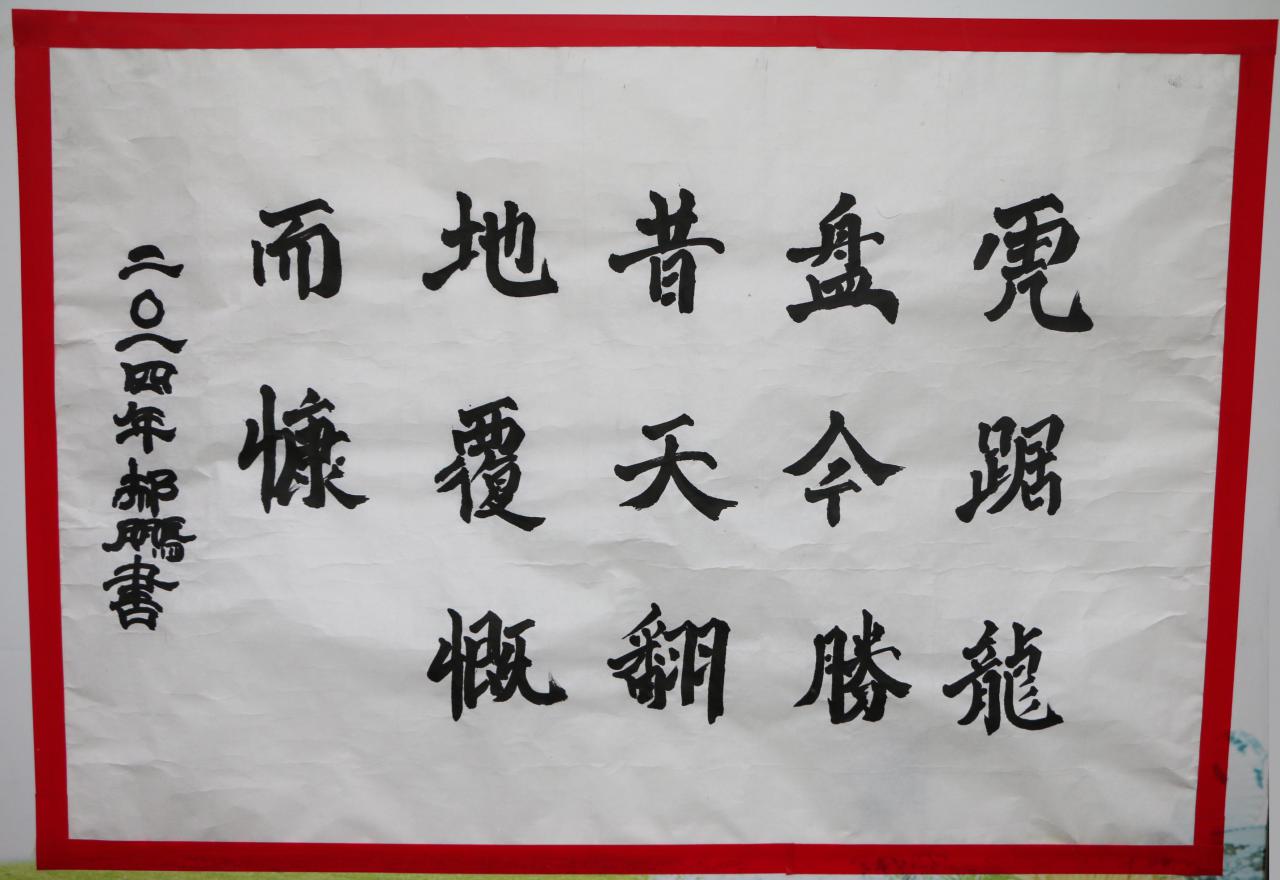 虎踞龍
盘今勝
昔天翻
地覆慨
而慷
二〇一四年郝鵬書